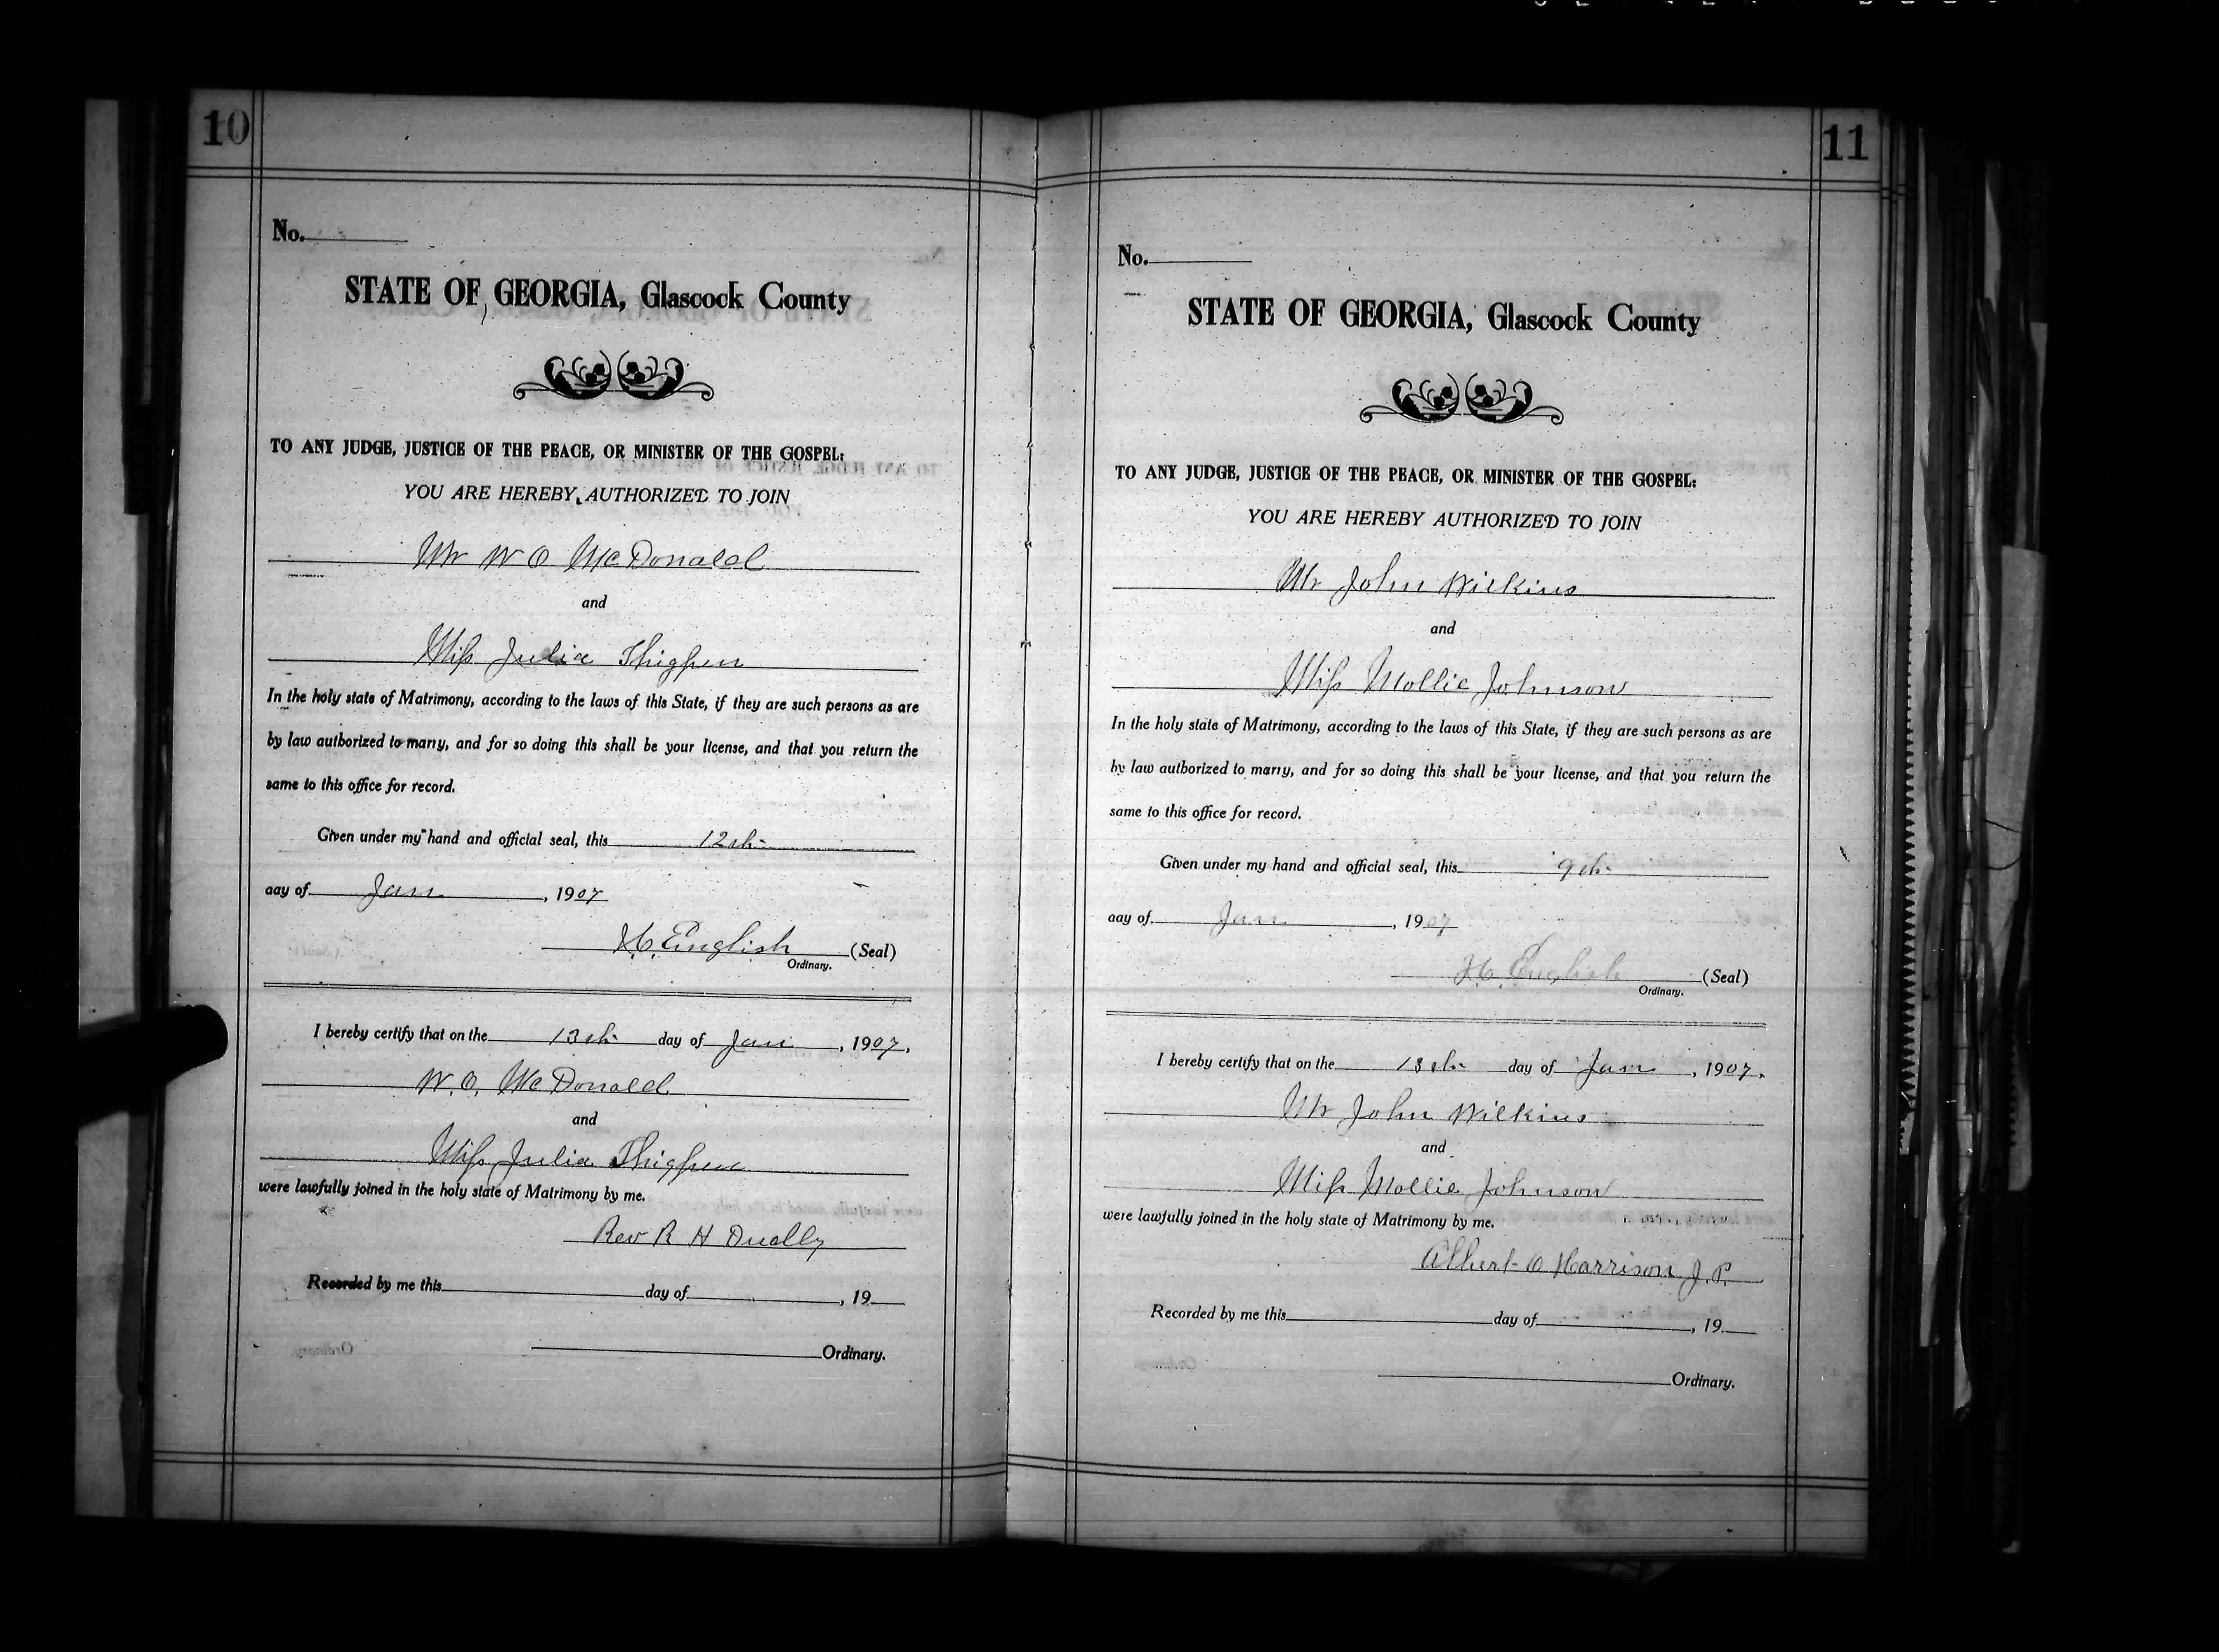 10
No.
STATE OF GEORGIA, Glascock County
TO ANY JUDGE, JUSTICE OF THE PEACE, OR MINISTER OF THE GOSPEL:
YOU ARE HEREBY AUTHORIZED TO JOIN
Mr W O McDonald
and
Miss Julia Thigpen
In the holy state of Matrimony, according to the laws of this State, if they are such persons as are
by law authorized to marry, and for so doing this shall be your license, and that you return the
same to this office for record.
Given under my hand and official seal, this 12th
day of Jan, 1907
English (Seal)
Ordinary.
I hereby certify that on the 13th day of Jan, 1907.
W. O. McDonald
and
Miss Julia Thigpen
were lawfully joined in the holy state of Matrimony by me.
Rev R H
Recorded by me this day of , 19
Ordinary.
11
No.
STATE OF GEORGIA, Glascock County
TO ANY JUDGE, JUSTICE OF THE PEACE, OR MINISTER OF THE GOSPEL:
YOU ARE HEREBY AUTHORIZED TO JOIN
Mr John Wilkins
and
Miss Mollie Johnson
In the holy state of Matrimony, according to the laws of this State, if they are such persons as are
by law authorized to marry, and for so doing this shall be your license, and that you return the
same to this office for record.
Given under my hand and official seal, this 9th
day of Jan, 1907
English (Seal)
Ordinary.
I hereby certify that on the 13th day of Jan, 1907.
Mr John Wilkins
and
Miss Mollie Johnson
were lawfully joined in the holy state of Matrimony by me.
Albert O Harrison J. P.
Recorded by me this day of , 19
Ordinary.